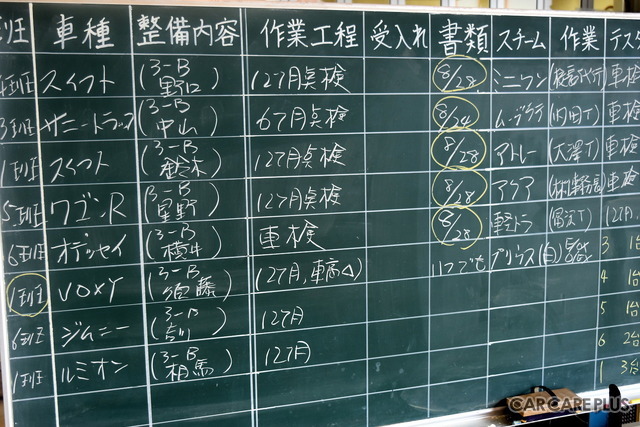 班 車種 整備内容 作業工程 受入れ 書類 スチーム 作業 テスタ
班 スイフト (3-B 野口) 12ヶ月点検 8/28 ミニワン 車検
3班 サニートラック (3-B 中山) 6ヶ月点検 8/24 (内田T) 車検
1班 スイフト (3-B 鈴木) 12ヶ月点検 8/28 アトレー (大澤T) 車検
5班 ワゴンR (3-B 星野) 12ヶ月点検 8/28 アクア 車検
6班 オデッセイ (3-B 横井) 車検 8/28 軽トラ 12ヶ月
1班 VOXY (3-B 須藤) (12ヶ月, 車高△) いつでも プリウス(白) 3 1台
6班 ジムニー (3-B 吉川) 12ヶ月 4 1台
1班 ルミオン (3-B 相馬) 12ヶ月 5 1台
6 2台
1 3台
CAR CARE PLUS